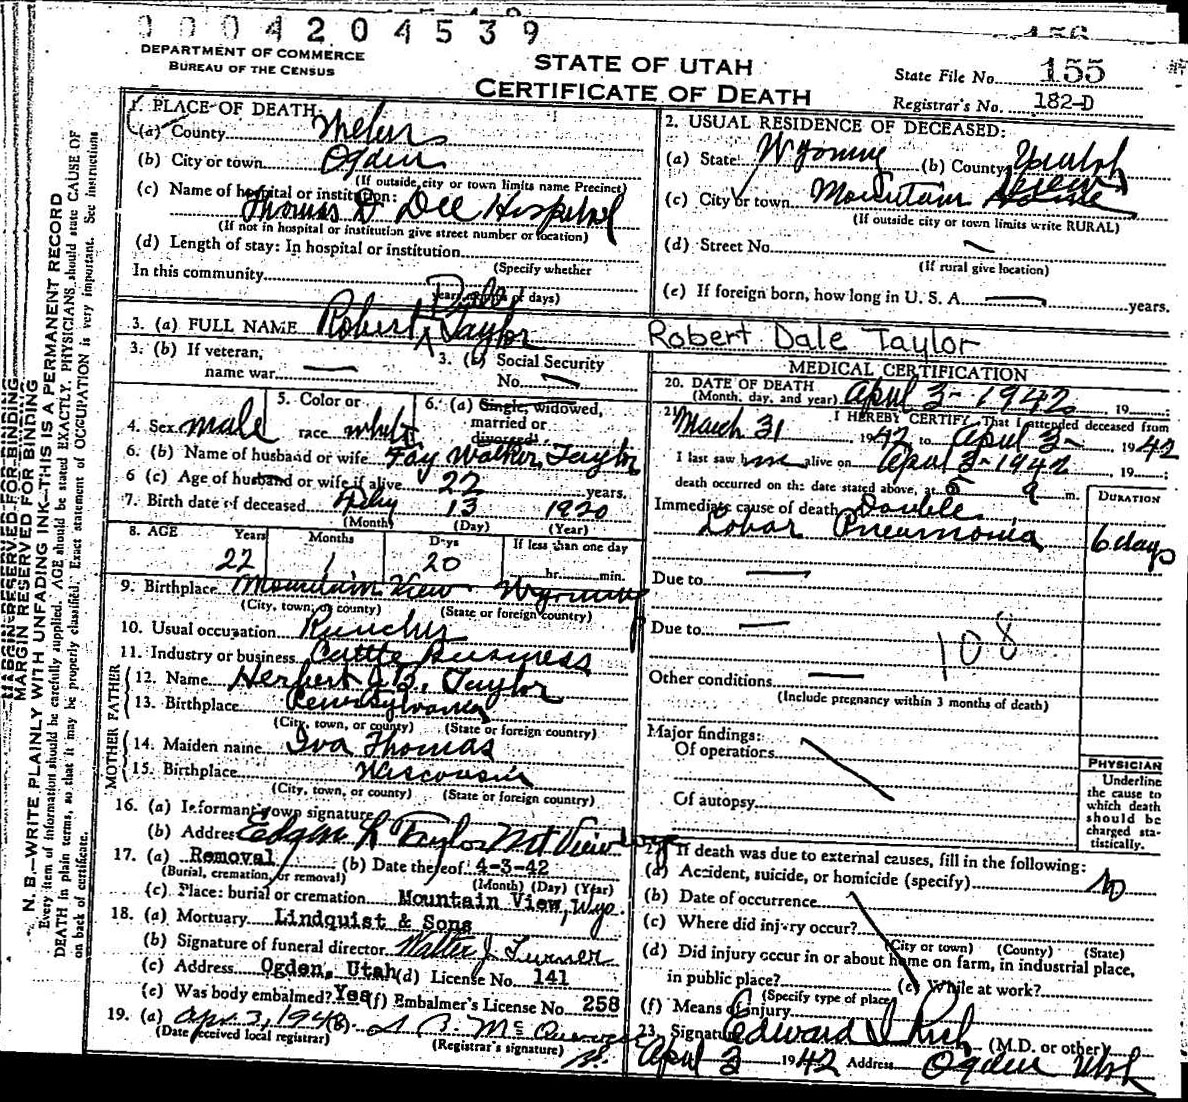 0 0 0 4 2 0 4 5 3 9
DEPARTMENT OF COMMERCE
BUREAU OF THE CENSUS
STATE OF UTAH
CERTIFICATE OF DEATH
State File No. 155
Registrar's No. 182-D
MARGIN RESERVED FOR BINDING
N. B.—WRITE PLAINLY WITH UNFADING INK—THIS IS A PERMANENT RECORD
Every item of information should be carefully supplied. AGE should be stated EXACTLY. PHYSICIANS should state CAUSE OF
DEATH in plain terms, so that it may be properly classified. Exact statement of OCCUPATION is very important. See instructions
on back of certificate.
1. PLACE OF DEATH:
(a) County Weber
(b) City or town Ogden
(If outside city or town limits name Precinct)
(c) Name of hospital or institution:
Thomas D Dee Hospital
(If not in hospital or institution give street number or location)
(d) Length of stay: In hospital or institution
(Specify whether
In this community
years, months or days)
2. USUAL RESIDENCE OF DECEASED:
(a) State Wyoming (b) County
(c) City or town Mountain View
(If outside city or town limits write RURAL)
(d) Street No. —
(If rural give location)
(e) If foreign born, how long in U. S. A. — years.
3. (a) FULL NAME Robert Dale Taylor
Robert Dale Taylor
3. (b) If veteran,
name war —
3. (c) Social Security
No. —
4. Sex male
5. Color or
race white
6. (a) Single, widowed,
married or
divorced
6. (b) Name of husband or wife Fay Walker Taylor
6 (c) Age of husband or wife if alive 22 years.
7. Birth date of deceased 13 1920
(Month) (Day) (Year)
8. AGE Years Months Days If less than one day
22 1 20 hr. min.
9. Birthplace Mountain View Wyoming
(City, town, or county) (State or foreign country)
10. Usual occupation Rancher
11. Industry or business Cattle Business
FATHER
12. Name Herbert B. Taylor
13. Birthplace Pennsylvania
(City, town, or county) (State or foreign country)
MOTHER
14. Maiden name Iva Thomas
15. Birthplace Wisconsin
(City, town, or county) (State or foreign country)
16. (a) Informant's own signature
(b) Address Edgar L Taylor Mt View Wyo
17. (a) Removal (b) Date thereof 4-3-42
(Burial, cremation, or removal) (Month) (Day) (Year)
(c) Place: burial or cremation Mountain View, Wyo.
18. (a) Mortuary Lindquist & Sons
(b) Signature of funeral director Walter J. Turner
(c) Address Ogden, Utah (d) License No. 141
(e) Was body embalmed? Yes (f) Embalmer's License No. 258
19. (a) Apr. 3, 1942 (b)
(Date received local registrar) (Registrar's signature)
MEDICAL CERTIFICATION
20. DATE OF DEATH
(Month, day, and year) April 3-1942 , 19 ;
21. I HEREBY CERTIFY, That I attended deceased from
March 31 1942 to April 3- 1942
I last saw him alive on April 3-1942, 19 ;
death occurred on the date stated above, at 5 a m.
DURATION
Immediate cause of death Double
Lobar Pneumonia 6 days
Due to —
Due to —
108
Other conditions —
(Include pregnancy within 3 months of death)
Major findings:
Of operations
Of autopsy
PHYSICIAN
Underline
the cause to
which death
should be
charged sta-
tistically.
22. If death was due to external causes, fill in the following:
(a) Accident, suicide, or homicide (specify) No
(b) Date of occurrence
(c) Where did injury occur?
(City or town) (County) (State)
(d) Did injury occur in or about home on farm, in industrial place,
in public place? (e) While at work?
(Specify type of place)
(f) Means of injury
23. Signature Edward I Rich (M.D. or other)
April 3 1942 Address Ogden Utah